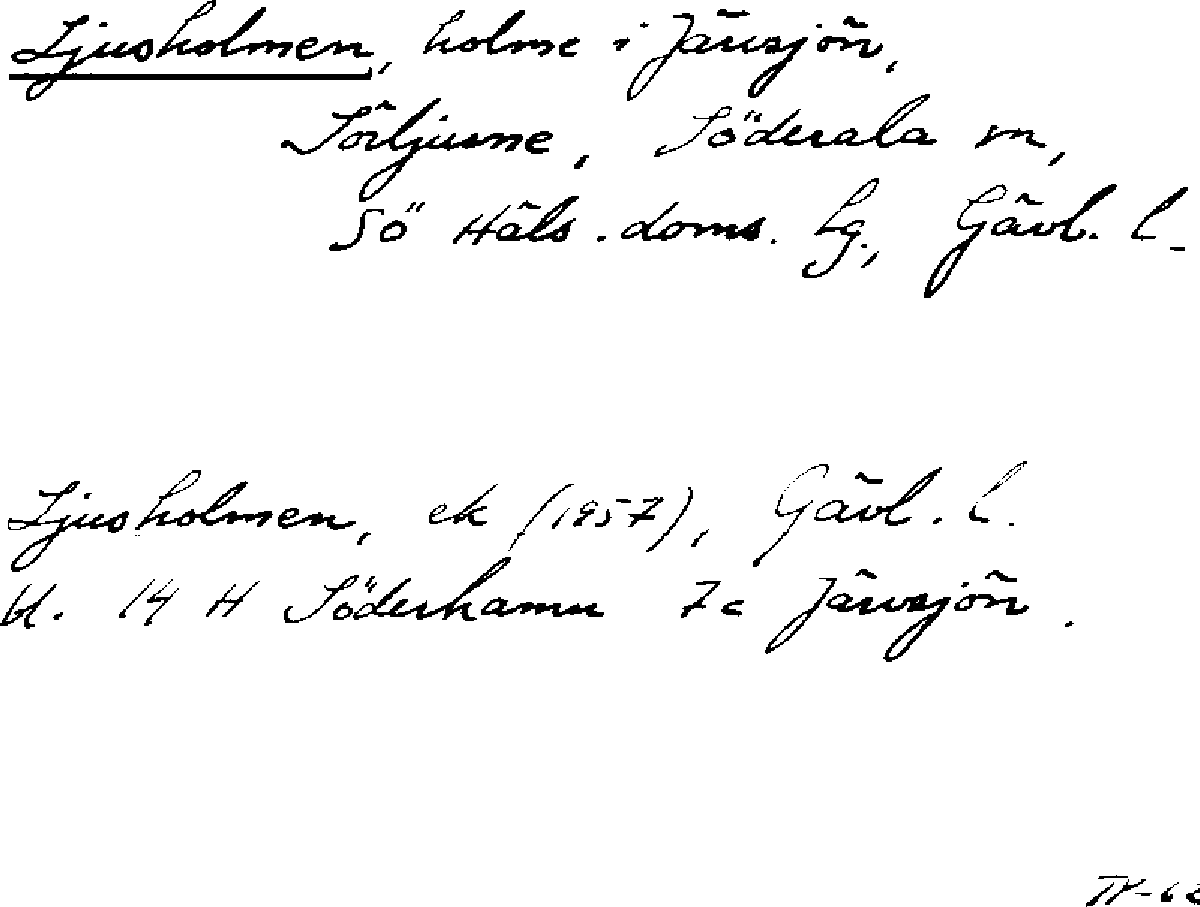 Ljusholmen, holme i Järvsjön,
Sörljusne, Söderala sn,
Sö Häls. doms. lg., Gävl. l.
Ljusholmen, ek (1957), Gävl. l.
bl. 14 H Söderhamn 7c Järvsjön.